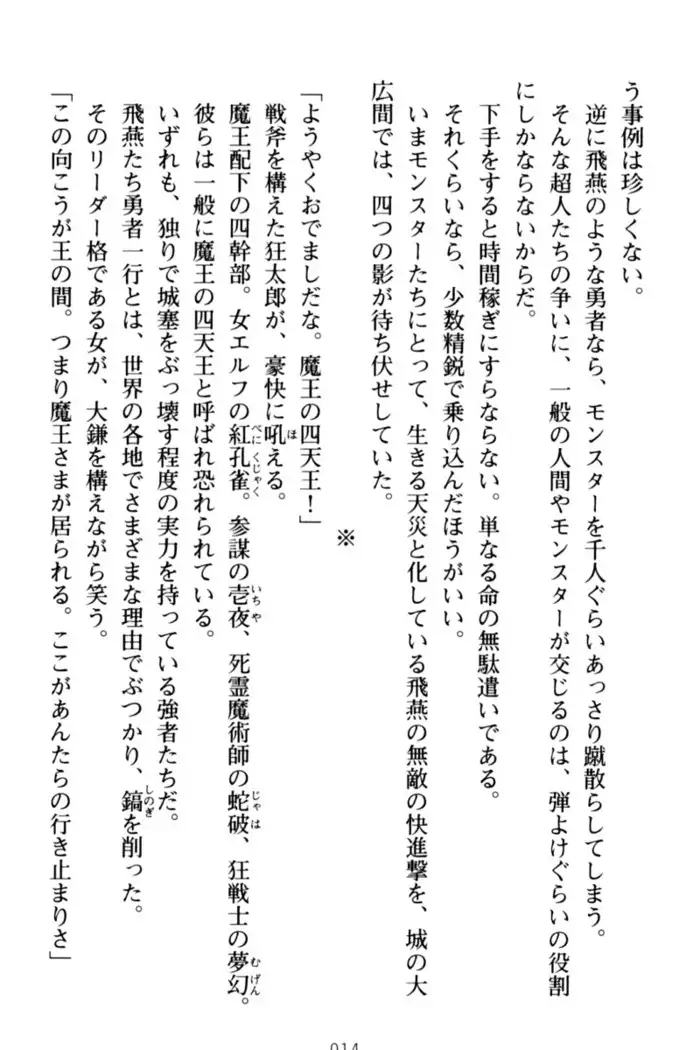 う事例は珍しくない。
逆に飛燕のような勇者なら、モンスターを千人ぐらいあっさり蹴散らしてしまう。
そんな超人たちの争いに、一般の人間やモンスターが交じるのは、弾よけぐらいの役割
にしかならないからだ。
下手をすると時間稼ぎにすらならない。単なる命の無駄遣いである。
それくらいなら、少数精鋭で乗り込んだほうがいい。
いまモンスターたちにとって、生きる天災と化している飛燕の無敵の快進撃を、城の大
広間では、四つの影が待ち伏せしていた。
※
「ようやくおでましだな。魔王の四天王！」
戦斧を構えた狂太郎が、豪快に吼える。
ほ
魔王配下の四幹部。女エルフの紅孔雀。参謀の壱夜、死霊魔術師の蛇破、狂戦士の夢幻。
べにくじゃく
いちや
じゃは
むげん
彼らは一般に魔王の四天王と呼ばれ恐れられている。
いずれも、独りで城塞をぶっ壊す程度の実力を持っている強者たちだ。
飛燕たち勇者一行とは、世界の各地でさまざまな理由でぶつかり、鎬を削った。
しのぎ
そのリーダー格である女が、大鎌を構えながら笑う。
「この向こうが王の間。つまり魔王さまが居られる。ここがあんたらの行き止まりさ」
014